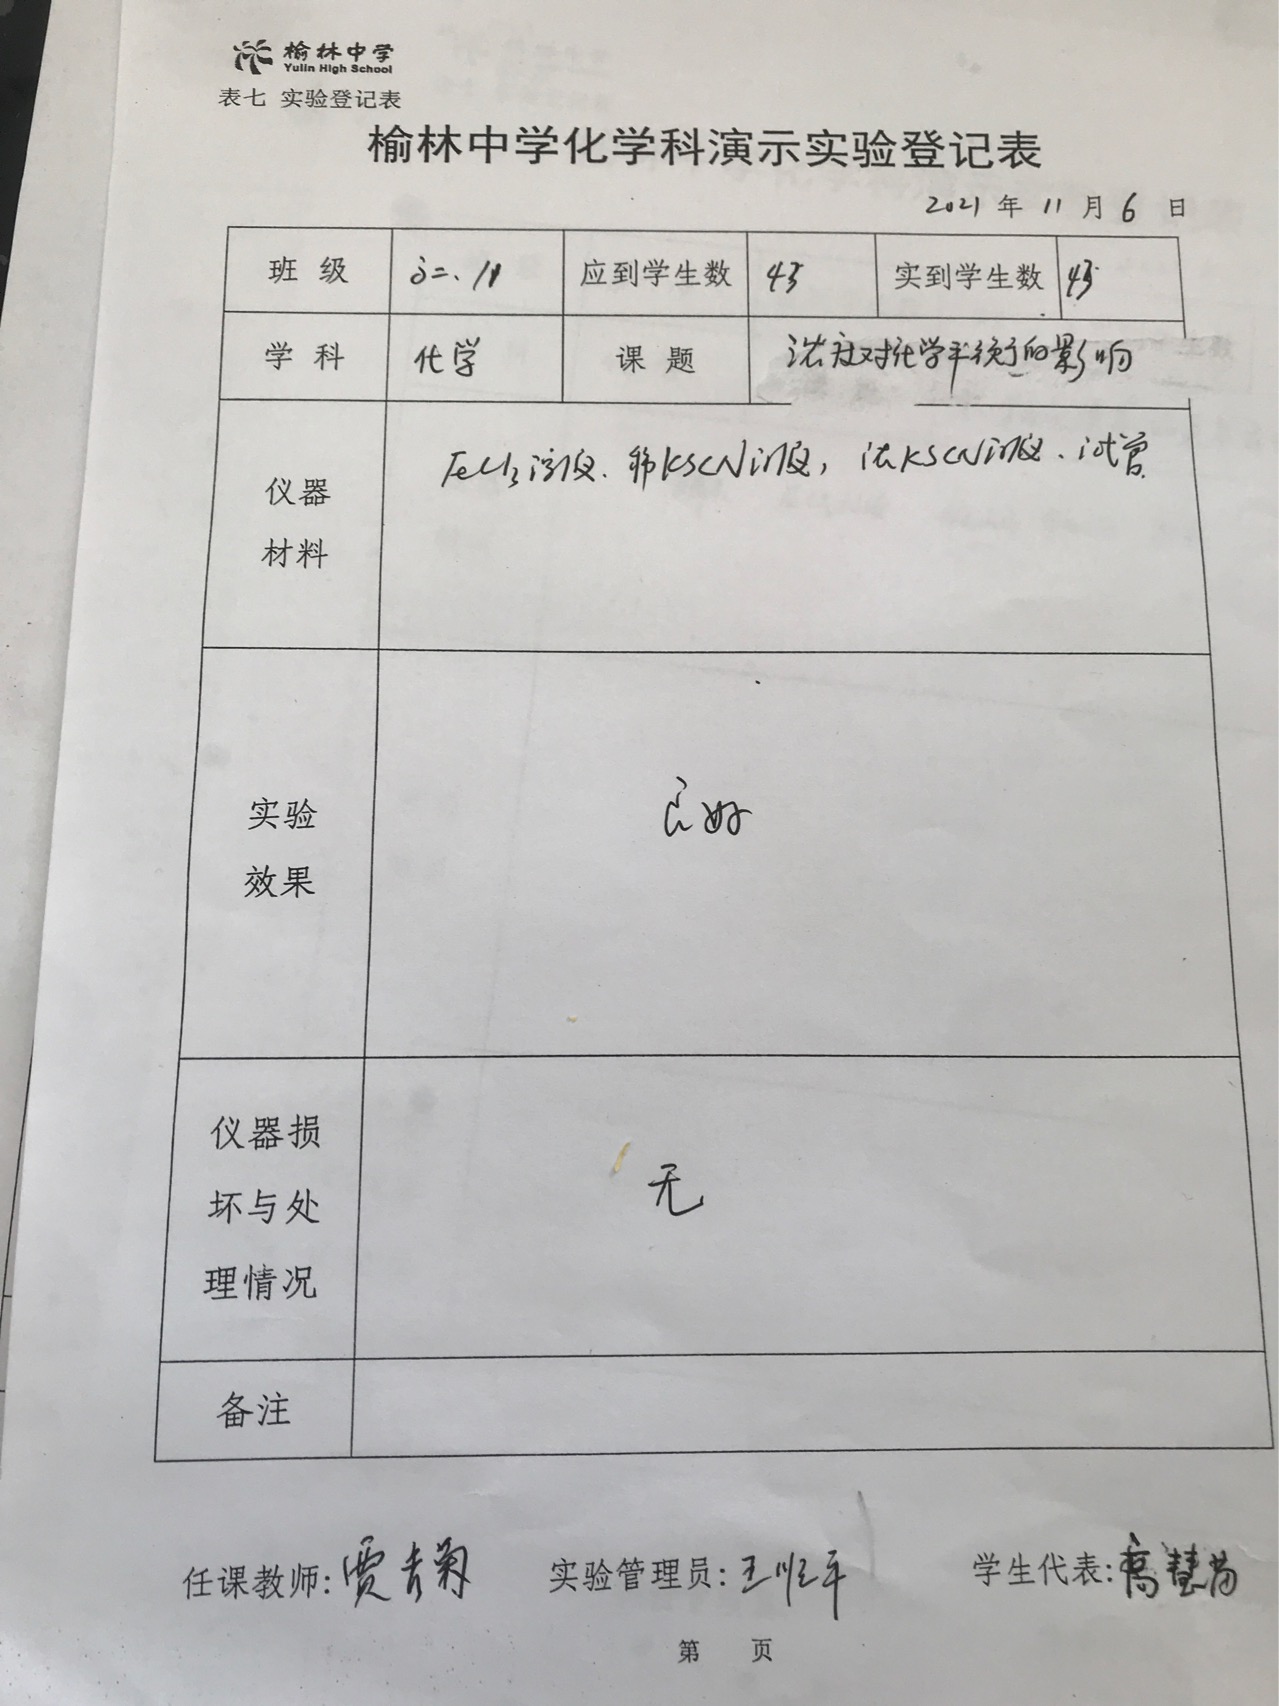 榆林中学
Yulin High School
表七 实验登记表
榆林中学化学科演示实验登记表
2021 年 11 月 6 日
班 级 高二、 应到学生数 43 实到学生数 43
学 科 化学 课 题 浓度对化学平衡的影响
仪器 FeCl3溶液、稀KSCN溶液, 浓KSCN溶液、试管
材料
实验 良好
效果
仪器损
坏与处 无
理情况
备注
任课教师: 贾 菊 实验管理员: 王顺平 学生代表: 高慧
第 页